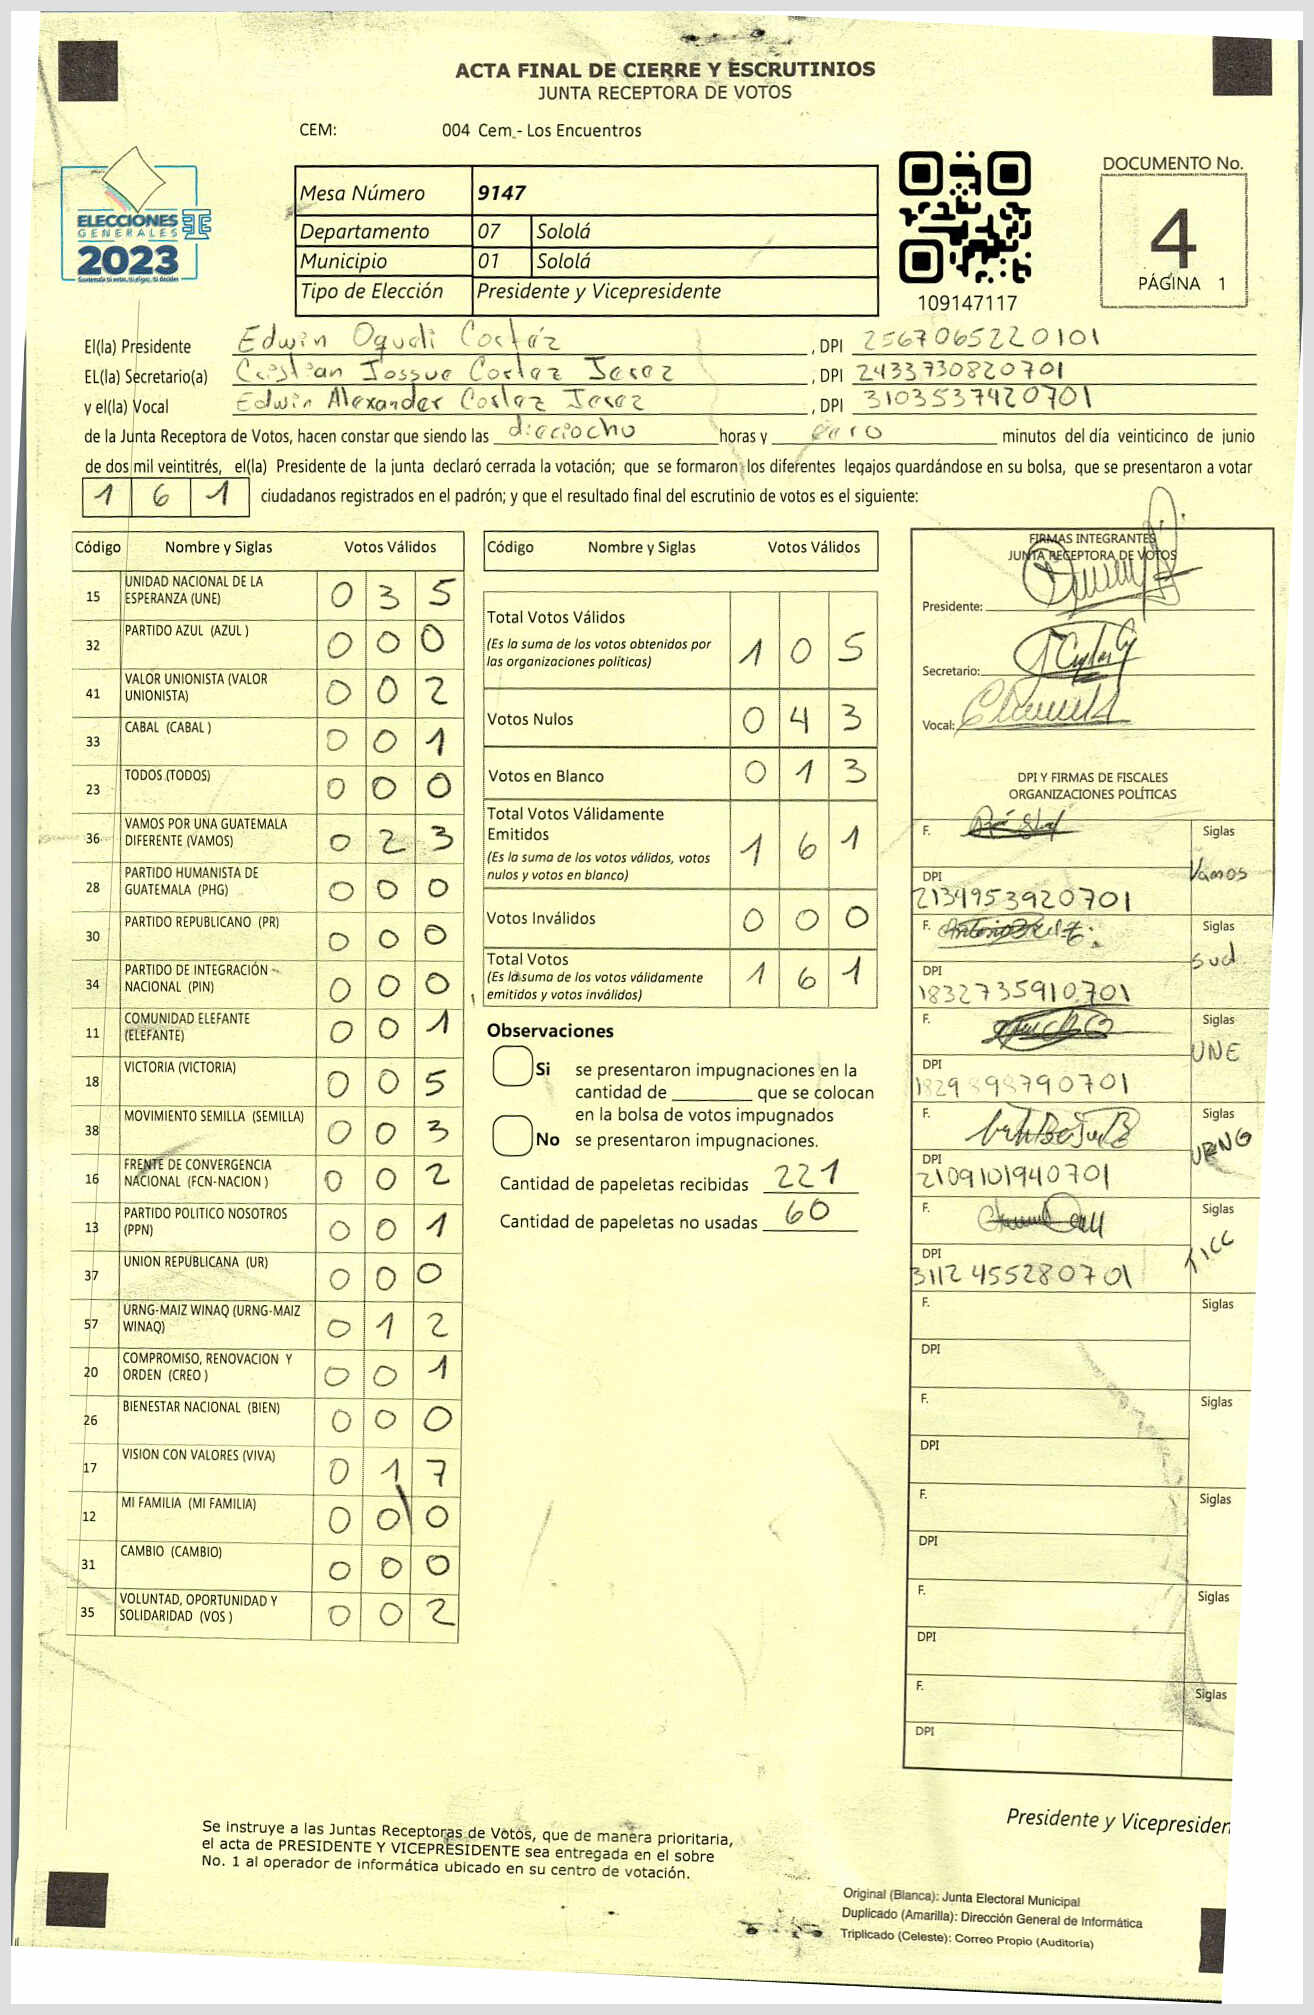 ACTA FINAL DE CIERRE Y ESCRUTINIOS
JUNTA RECEPTORA DE VOTOS
CEM: 004 Cem.- Los Encuentros
ELECCIONES
GENERALES
2023
Mesa Número 9147
Departamento 07 Sololá
Municipio 01 Sololá
Tipo de Elección Presidente y Vicepresidente
109147117
DOCUMENTO No.
4
PÁGINA 1
El(la) Presidente Edwin Oqueli Cortéz, DPI 2567065220101
EL(la) Secretario(a) Cristian Jossue Cortez Jerez, DPI 2433730820701
y el(la) Vocal Edwin Alexander Cortez Jerez, DPI 3103537420701
de la Junta Receptora de Votos, hacen constar que siendo las dieciocho horas y cero minutos del día veinticinco de junio
de dos mil veintitrés, el(la) Presidente de la junta declaró cerrada la votación; que se formaron los diferentes legajos guardándose en su bolsa, que se presentaron a votar
1 6 1 ciudadanos registrados en el padrón; y que el resultado final del escrutinio de votos es el siguiente:
Código Nombre y Siglas Votos Válidos
15 UNIDAD NACIONAL DE LA ESPERANZA (UNE) 0 3 5
32 PARTIDO AZUL (AZUL ) 0 0 0
41 VALOR UNIONISTA (VALOR UNIONISTA) 0 0 2
33 CABAL (CABAL ) 0 0 1
23 TODOS (TODOS) 0 0 0
36 VAMOS POR UNA GUATEMALA DIFERENTE (VAMOS) 0 2 3
28 PARTIDO HUMANISTA DE GUATEMALA (PHG) 0 0 0
30 PARTIDO REPUBLICANO (PR) 0 0 0
34 PARTIDO DE INTEGRACIÓN NACIONAL (PIN) 0 0 0
11 COMUNIDAD ELEFANTE (ELEFANTE) 0 0 1
18 VICTORIA (VICTORIA) 0 0 5
38 MOVIMIENTO SEMILLA (SEMILLA) 0 0 3
16 FRENTE DE CONVERGENCIA NACIONAL (FCN-NACION ) 0 0 2
13 PARTIDO POLITICO NOSOTROS (PPN) 0 0 1
37 UNION REPUBLICANA (UR) 0 0 0
57 URNG-MAIZ WINAQ (URNG-MAIZ WINAQ) 0 1 2
20 COMPROMISO, RENOVACION Y ORDEN (CREO ) 0 0 1
26 BIENESTAR NACIONAL (BIEN) 0 0 0
17 VISION CON VALORES (VIVA) 0 1 7
12 MI FAMILIA (MI FAMILIA) 0 0 0
31 CAMBIO (CAMBIO) 0 0 0
35 VOLUNTAD, OPORTUNIDAD Y SOLIDARIDAD (VOS ) 0 0 2
Código Nombre y Siglas Votos Válidos
Total Votos Válidos 1 0 5
(Es la suma de los votos obtenidos por
las organizaciones políticas)
Votos Nulos 0 4 3
Votos en Blanco 0 1 3
Total Votos Válidamente
Emitidos 1 6 1
(Es la suma de los votos válidos, votos
nulos y votos en blanco)
Votos Inválidos 0 0 0
Total Votos 1 6 1
(Es la suma de los votos válidamente
emitidos y votos inválidos)
Observaciones
Si se presentaron impugnaciones en la
cantidad de ________ que se colocan
en la bolsa de votos impugnados
No se presentaron impugnaciones.
Cantidad de papeletas recibidas 221
Cantidad de papeletas no usadas 60
FIRMAS INTEGRANTES
JUNTA RECEPTORA DE VOTOS
Presidente:
Secretario:
Vocal:
DPI Y FIRMAS DE FISCALES
ORGANIZACIONES POLÍTICAS
F. Siglas
Vamos
DPI
2134953920701
F. Siglas
sud
DPI
1832735910701
F. Siglas
UNE
DPI
1829898790701
F. Siglas
URNG
DPI
2109101940701
F. Siglas
DPI
3112455280701
F. Siglas
DPI
F. Siglas
DPI
F. Siglas
DPI
F. Siglas
DPI
F. Siglas
DPI
Presidente y Vicepresiden
Se instruye a las Juntas Receptoras de Votos, que de manera prioritaria,
el acta de PRESIDENTE Y VICEPRESIDENTE sea entregada en el sobre
No. 1 al operador de informática ubicado en su centro de votación.
Original (Blanca): Junta Electoral Municipal
Duplicado (Amarilla): Dirección General de Informática
Triplicado (Celeste): Correo Propio (Auditoría)